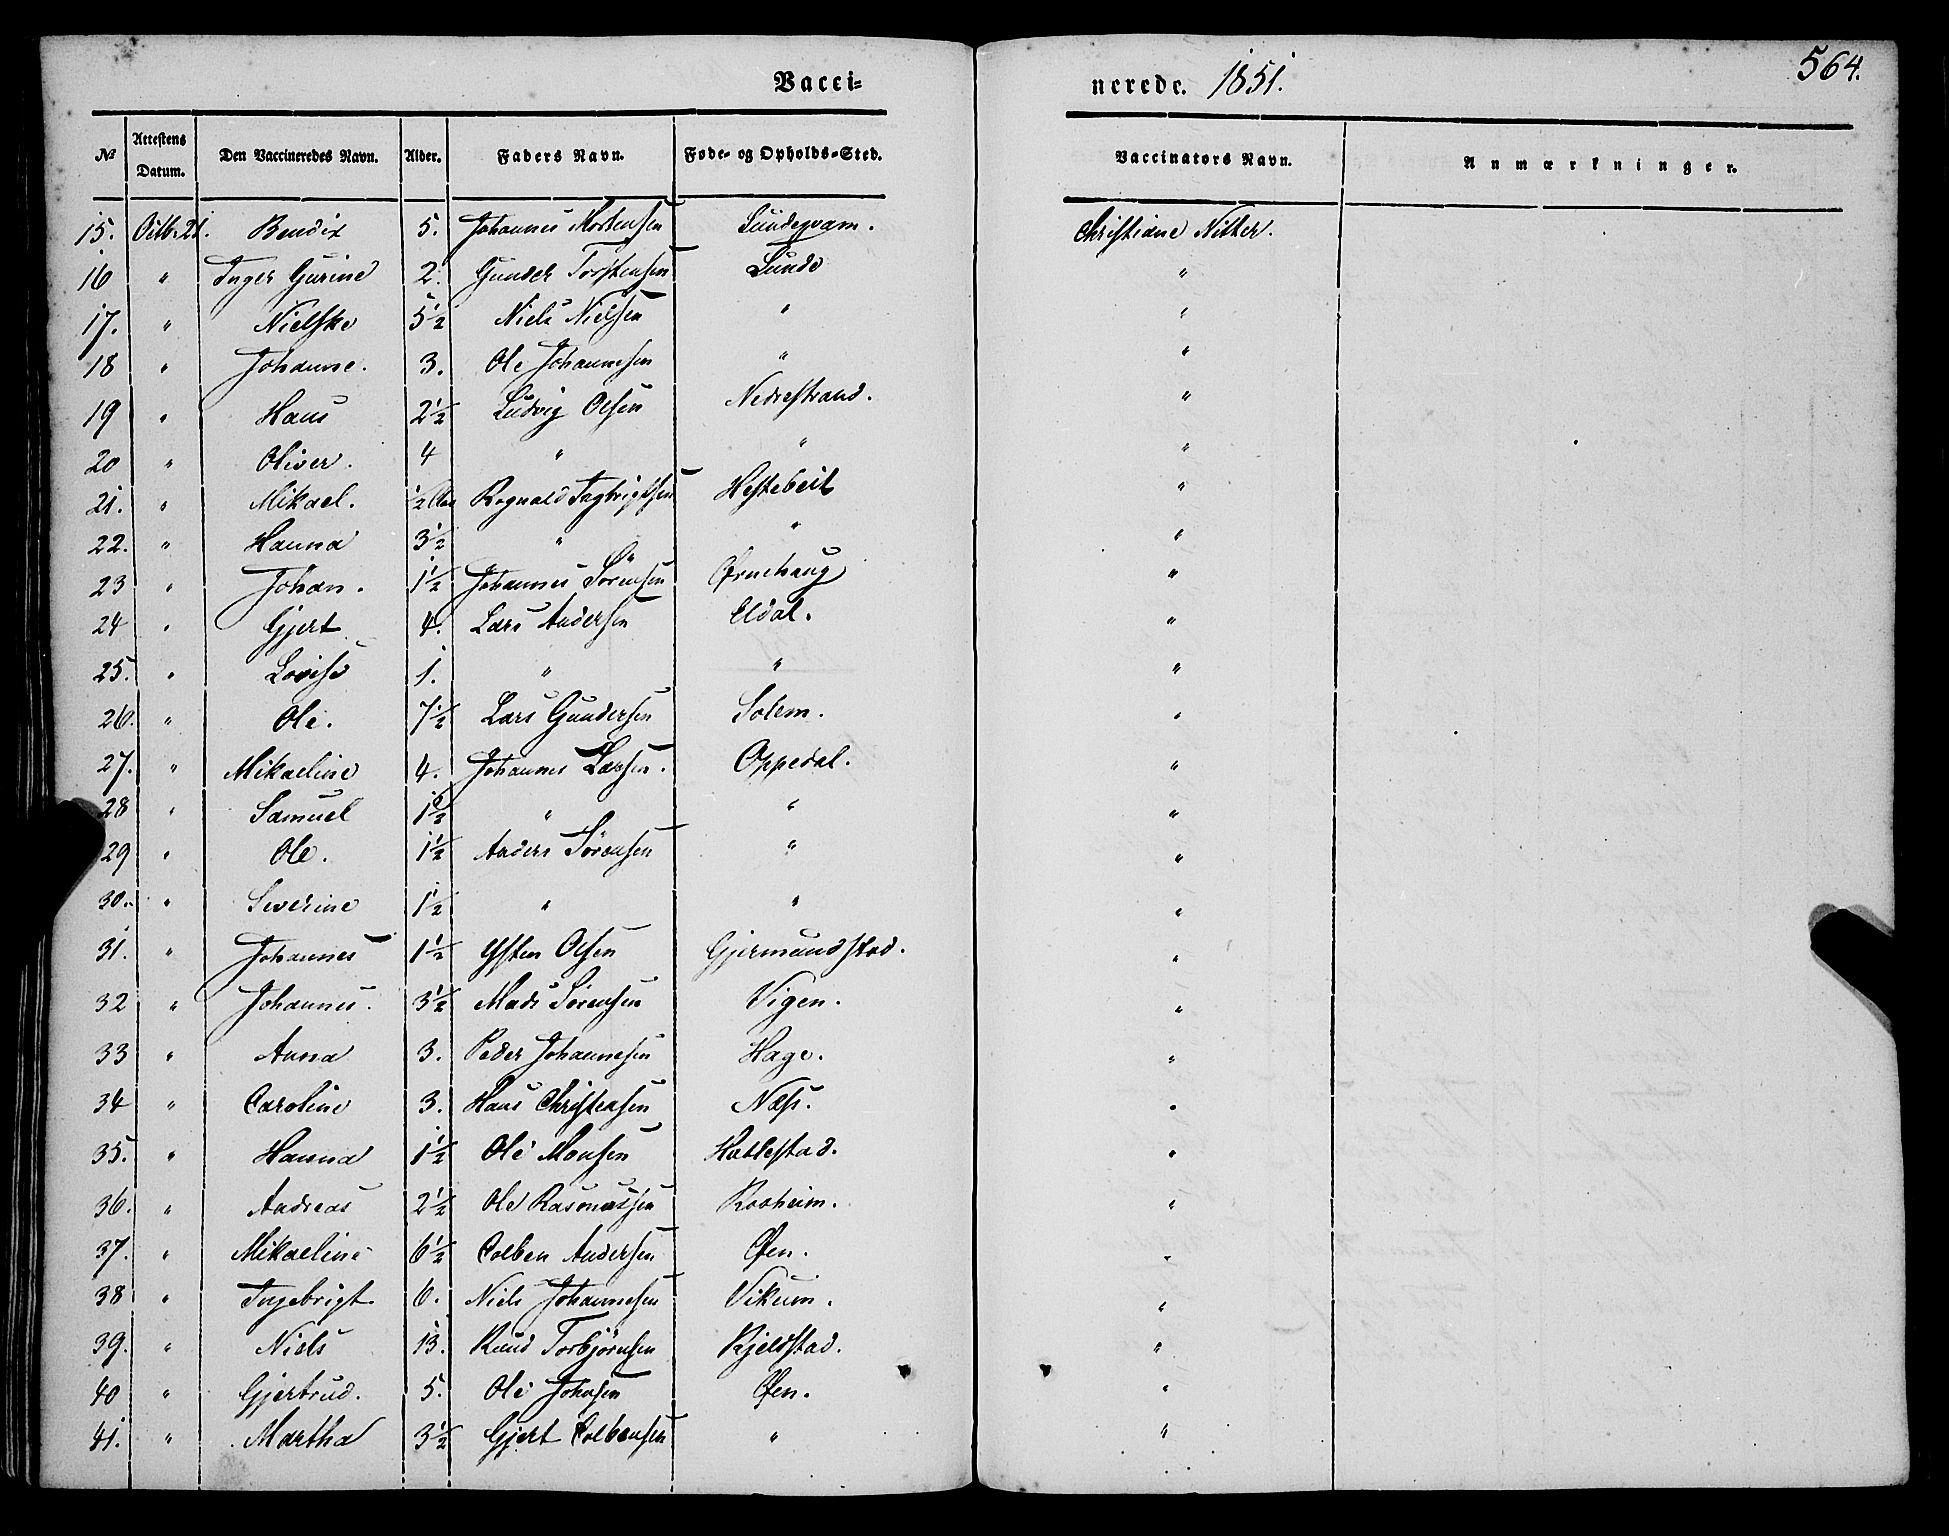 564.
Vacci- nerede. 1851.
№ Attestens Datum. Den Vaccineredes Navn. Alder. Faders Navn. Føde- og Opholds-Sted. Vaccinators Navn. Anmærkninger.
15. Octb. 21. Bendix 5. Johannes Mortensen Christiane Nitter.
16 " Inger Gurine 2. Gunder Torstensen Lunde "
17. " Nielske 5½ Niels Nielsen " "
18 " Johanne. 3. Ole Johannesen " "
19 " Hans 2½ Ludvig Olsen Nedrestrand. "
20 " Oliver. 4 " " "
21. " Mikael. ½ Rognald Ingbrigtsen Hestebeit "
22. " Hanna 3½ " " "
23 " Johan. 1½ Johannes Sørensen Ørnehaug "
24 " Gjert 4. Lars Andersen Eldal. "
25. " Lovise 1. " " "
26. " Ole. 7½ Lars Gundersen Solem. "
27. " Mikaeline 4. Johannes Larsen. Oppedal. "
28 " Samuel 1½ " " "
29 " Ole. 1½ Anders Sørensen " "
30. " Severine 1½ " " "
31. " Johannes 1½ Østen Olsen Gjermundstad. "
32 " Johannes. 3½ Mads Sørensen Vigen. "
33 " Anna 3. Peder Johannesen Hage. "
34 " Caroline 3. Hans Christensen Næss. "
35. " Hanna 1½ Ole Monsen Hatlestad. "
36. " Andreas 2½ Ole Rasmussen Rooheim. "
37. " Mikaeline 6½ Colben Andersen Øen. "
38 " Ingebrigt 6. Niels Johannesen Vikum. "
39. " Niels 13. Knud Torbjørnsen Kjelstad. "
40 " Gjertrud. 5. Ole Johnsen Øen. "
41. " Martha 3½ Gjert Colbensen " "